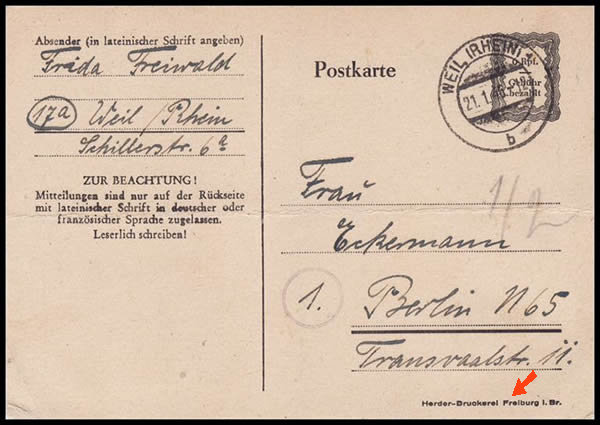 Absender (in lateinischer Schrift angeben)
Frida Freiwald
17a Weil/Rhein
Schillerstr. 6a
ZUR BEACHTUNG!
Mitteilungen sind nur auf der Rückseite
mit lateinischer Schrift in deutscher oder
französischer Sprache zugelassen.
Leserlich schreiben!
Postkarte
WEIL (RHEIN) 1
21.1.
b
6 Rpf.
Gebühr
bezahlt
Frau
1/2
Eckermann
1. Berlin N65
Transvaalstr. 11.
Herder-Druckerei Freiburg i. Br.